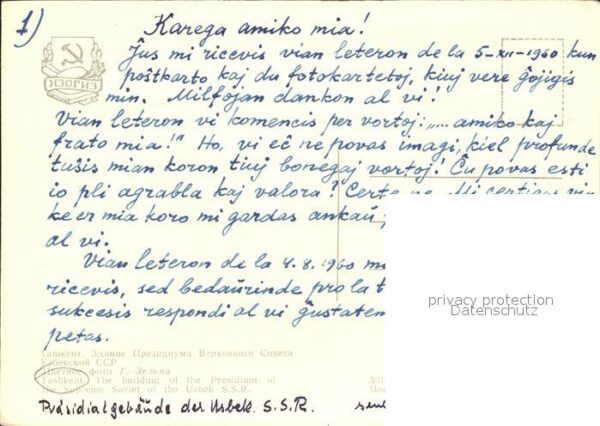 1) Karega amiko mia!
Ĵus mi ricevis vian leteron de la 5-XII-1960 kun
poŝtkarto kaj du fotokartetoj, kiuj vere ĝojigis
min. Milfojan dankon al vi!
ИЗОГИЗ
Vian leteron vi komencis per vortoj: „... amiko kaj
frato mia!" Ho, vi eĉ ne povas imagi, kiel profunde
tuŝis mian koron, tiuj bonegaj vortoj! Ĉu povas esti
io pli agrabla kaj valora? Certe ne. Mi certigas vin
ke en mia koro mi gardas ankaŭ
al vi.
Vian leteron de la 4.8.1960 m
ricevis, sed bedaŭrinde pro la t
sukcesis respondi al vi ĝustatem
petas.
privacy protection
Datenschutz
Ташкент. Здание Президиума Верховного Совета
Узбекской ССР
Цветное фото Г. Зельма
Tashkent. The building of the Presidium of
the Supreme Soviet of the Uzbek S.S.R.
Präsidialgebäude der Usbek. S.S.R.